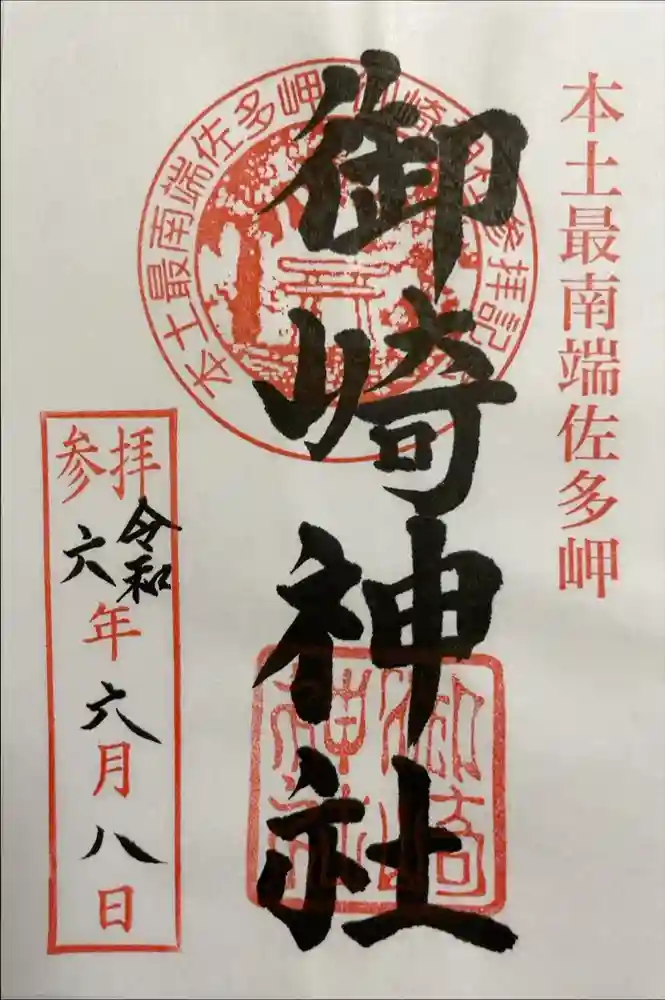 本土最南端佐多岬
御崎神社
本土最南端佐多岬 御崎神社参拝記
御崎神社
参拝
令和
六年六月八日